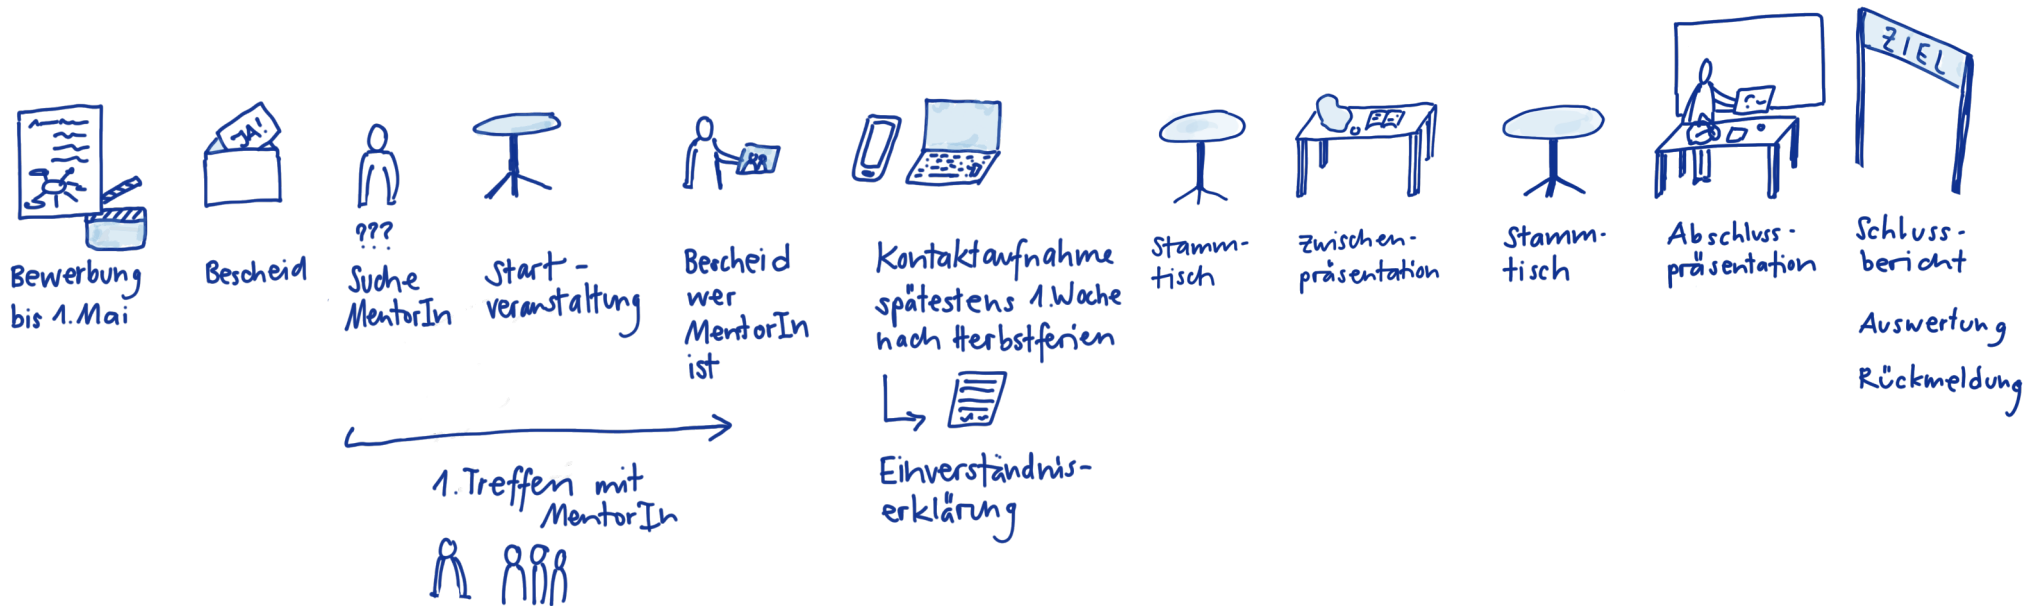 Bewerbung
bis 1. Mai
JA!
Bescheid
???
Suche
MentorIn
Start-
veranstaltung
Bescheid
wer
MentorIn
ist
1. Treffen mit
MentorIn
Kontaktaufnahme
spätestens 1. Woche
nach Herbstferien
Einverständnis-
erklärung
Stamm-
tisch
Zwischen-
präsentation
Stamm-
tisch
Abschluss-
präsentation
ZIEL
Schluss-
bericht
Auswertung
Rückmeldung